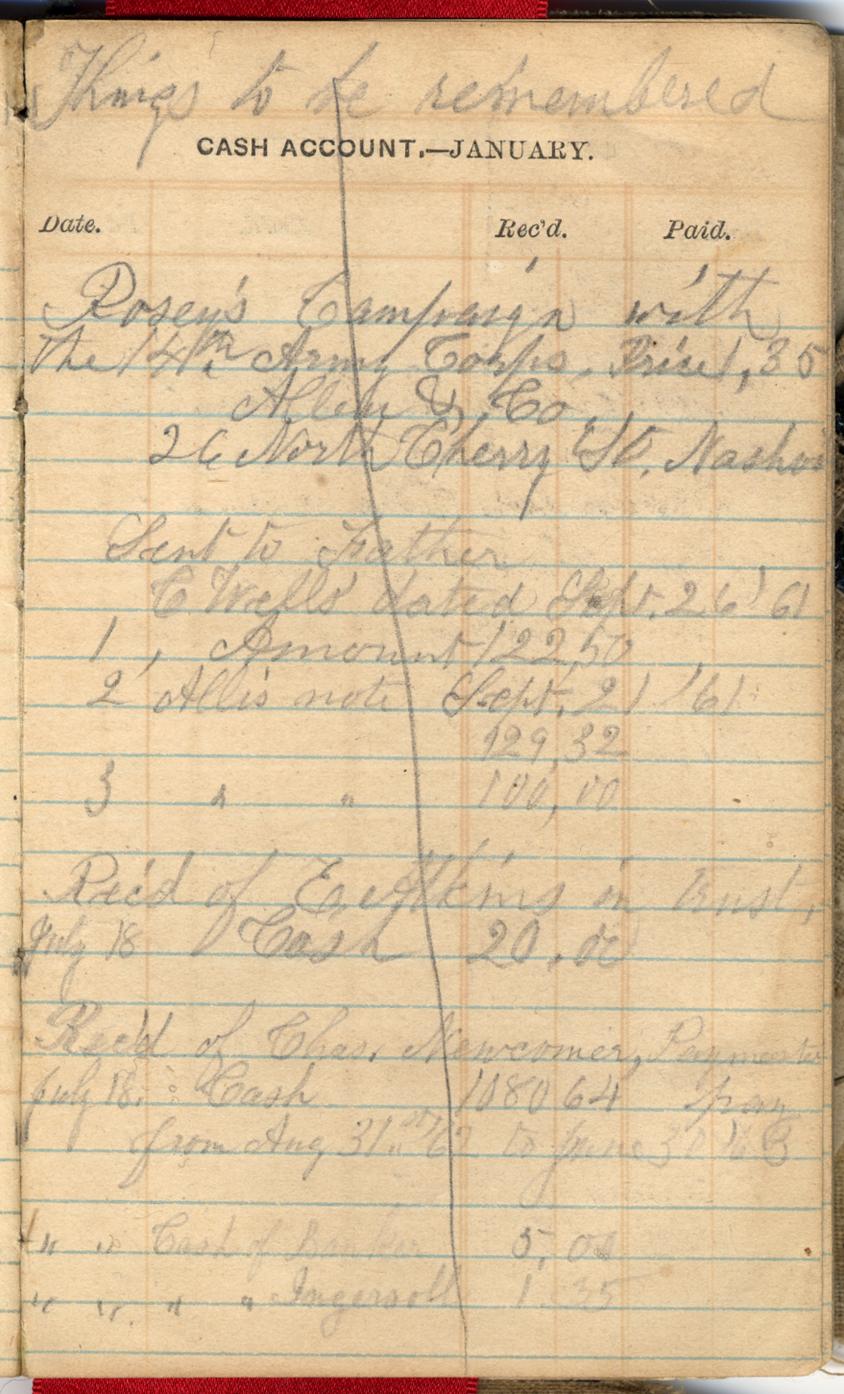 Things to be remembered
CASH ACCOUNT.—JANUARY.
Date. Rec'd. Paid.
Rosey's Campaign with
the 14th Army Corps. Price 1,35
Allen & Co,
26 North Cherry St. Nashvi
Sent to Father
C Wells' dated Sept. 26' 61
1, Amount 122,50
2' Allis note Sept. 21 '61
129,32
3 " " 100,00
Rec'd of in trust,
July 18 Cash 20.00
Rec'd of Chas. Newcomer, Paymaster
July 18. : Cash 1080 64 pay
from Aug 31st 62 to June 30 63
" " Cash of Banker 5,00
" " " " Ingersoll 1.35